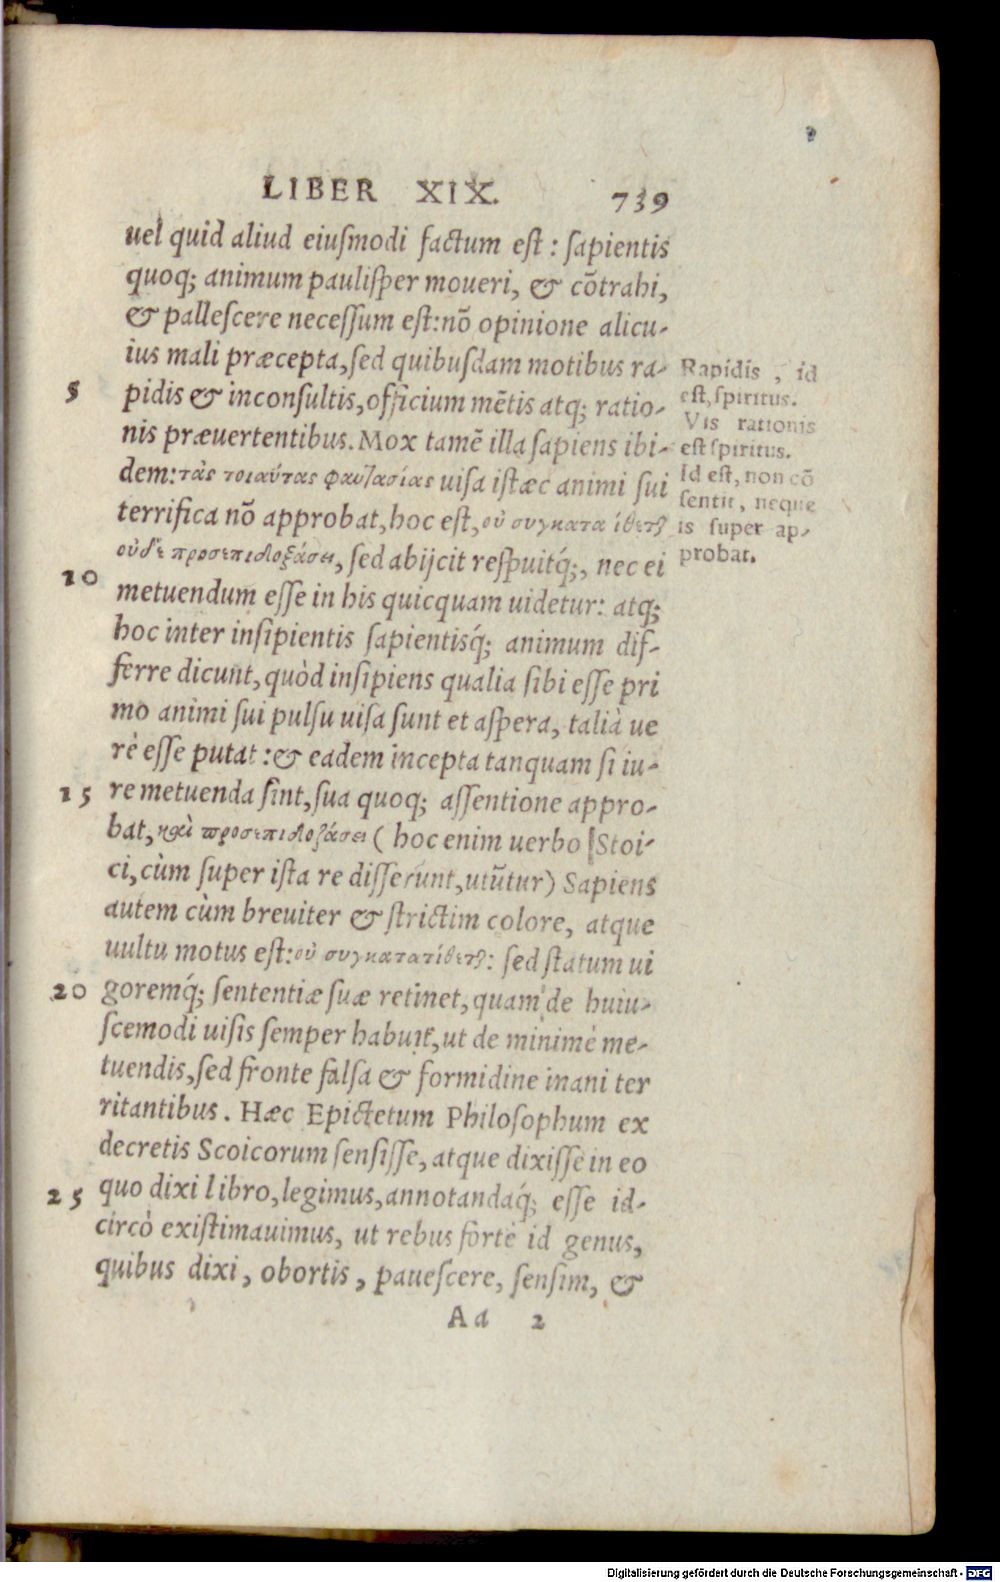 LIBER XIX. 739
uel quid aliud eiuſmodi factum eſt : ſapientis
quoq; animum pauliſper moueri, & cōtrahi,
& palleſcere neceſſum eſt:nō opinione alicu-
ius mali præcepta, ſed quibuſdam motibus ra-
5 pidis & inconſultis, officium mētis atq; ratio-
nis præuertentibus. Mox tamē illa ſapiens ibi-
dem: τὰς τοιαύτας φαντασίας uiſa iſtæc animi ſui
terrifica nō approbat, hoc eſt, οὐ συγκατα ίθεται
οὐδὲ προσεπιδοξάσει, ſed abijcit reſpuitq́;, nec ei
10 metuendum eſſe in his quicquam uidetur: atq;
hoc inter inſipientis ſapientisq́; animum dif-
ferre dicunt, quòd inſipiens qualia ſibi eſſe pri
mo animi ſui pulſu uiſa ſunt et aſpera, talià ue
rè eſſe putat : & eadem incepta tanquam ſi iu-
15 re metuenda ſint, ſua quoq; aſſentione appro-
bat, καὶ προσεπιδοξάσει ( hoc enim uerbo Stoi-
ci, cùm ſuper iſta re diſſerunt, utūtur) Sapiens
autem cùm breuiter & ſtrictim colore, atque
uultu motus eſt: οὐ συγκατατίθεται: ſed ſtatum ui
20 goremq́; ſententiæ ſuæ retinet, quam de huiu-
ſcemodi uiſis ſemper habuit, ut de minimè me-
tuendis, ſed fronte falſa & formidine inani ter
ritantibus. Hæc Epictetum Philoſophum ex
decretis Scoicorum ſenſiſſe, atque dixiſſe in eo
25 quo dixi libro, legimus, annotandaq́; eſſe id-
circò exiſtimauimus, ut rebus fortè id genus,
quibus dixi, obortis, paueſcere, ſenſim, &
Aa 2
Rapidis , id
eſt, ſpiritus.
Vis rationis
eſt ſpiritus.
Id eſt, non cō
ſentit, neque
is ſuper ap-
probat.
Digitalisierung gefördert durch die Deutsche Forschungsgemeinschaft - DFG